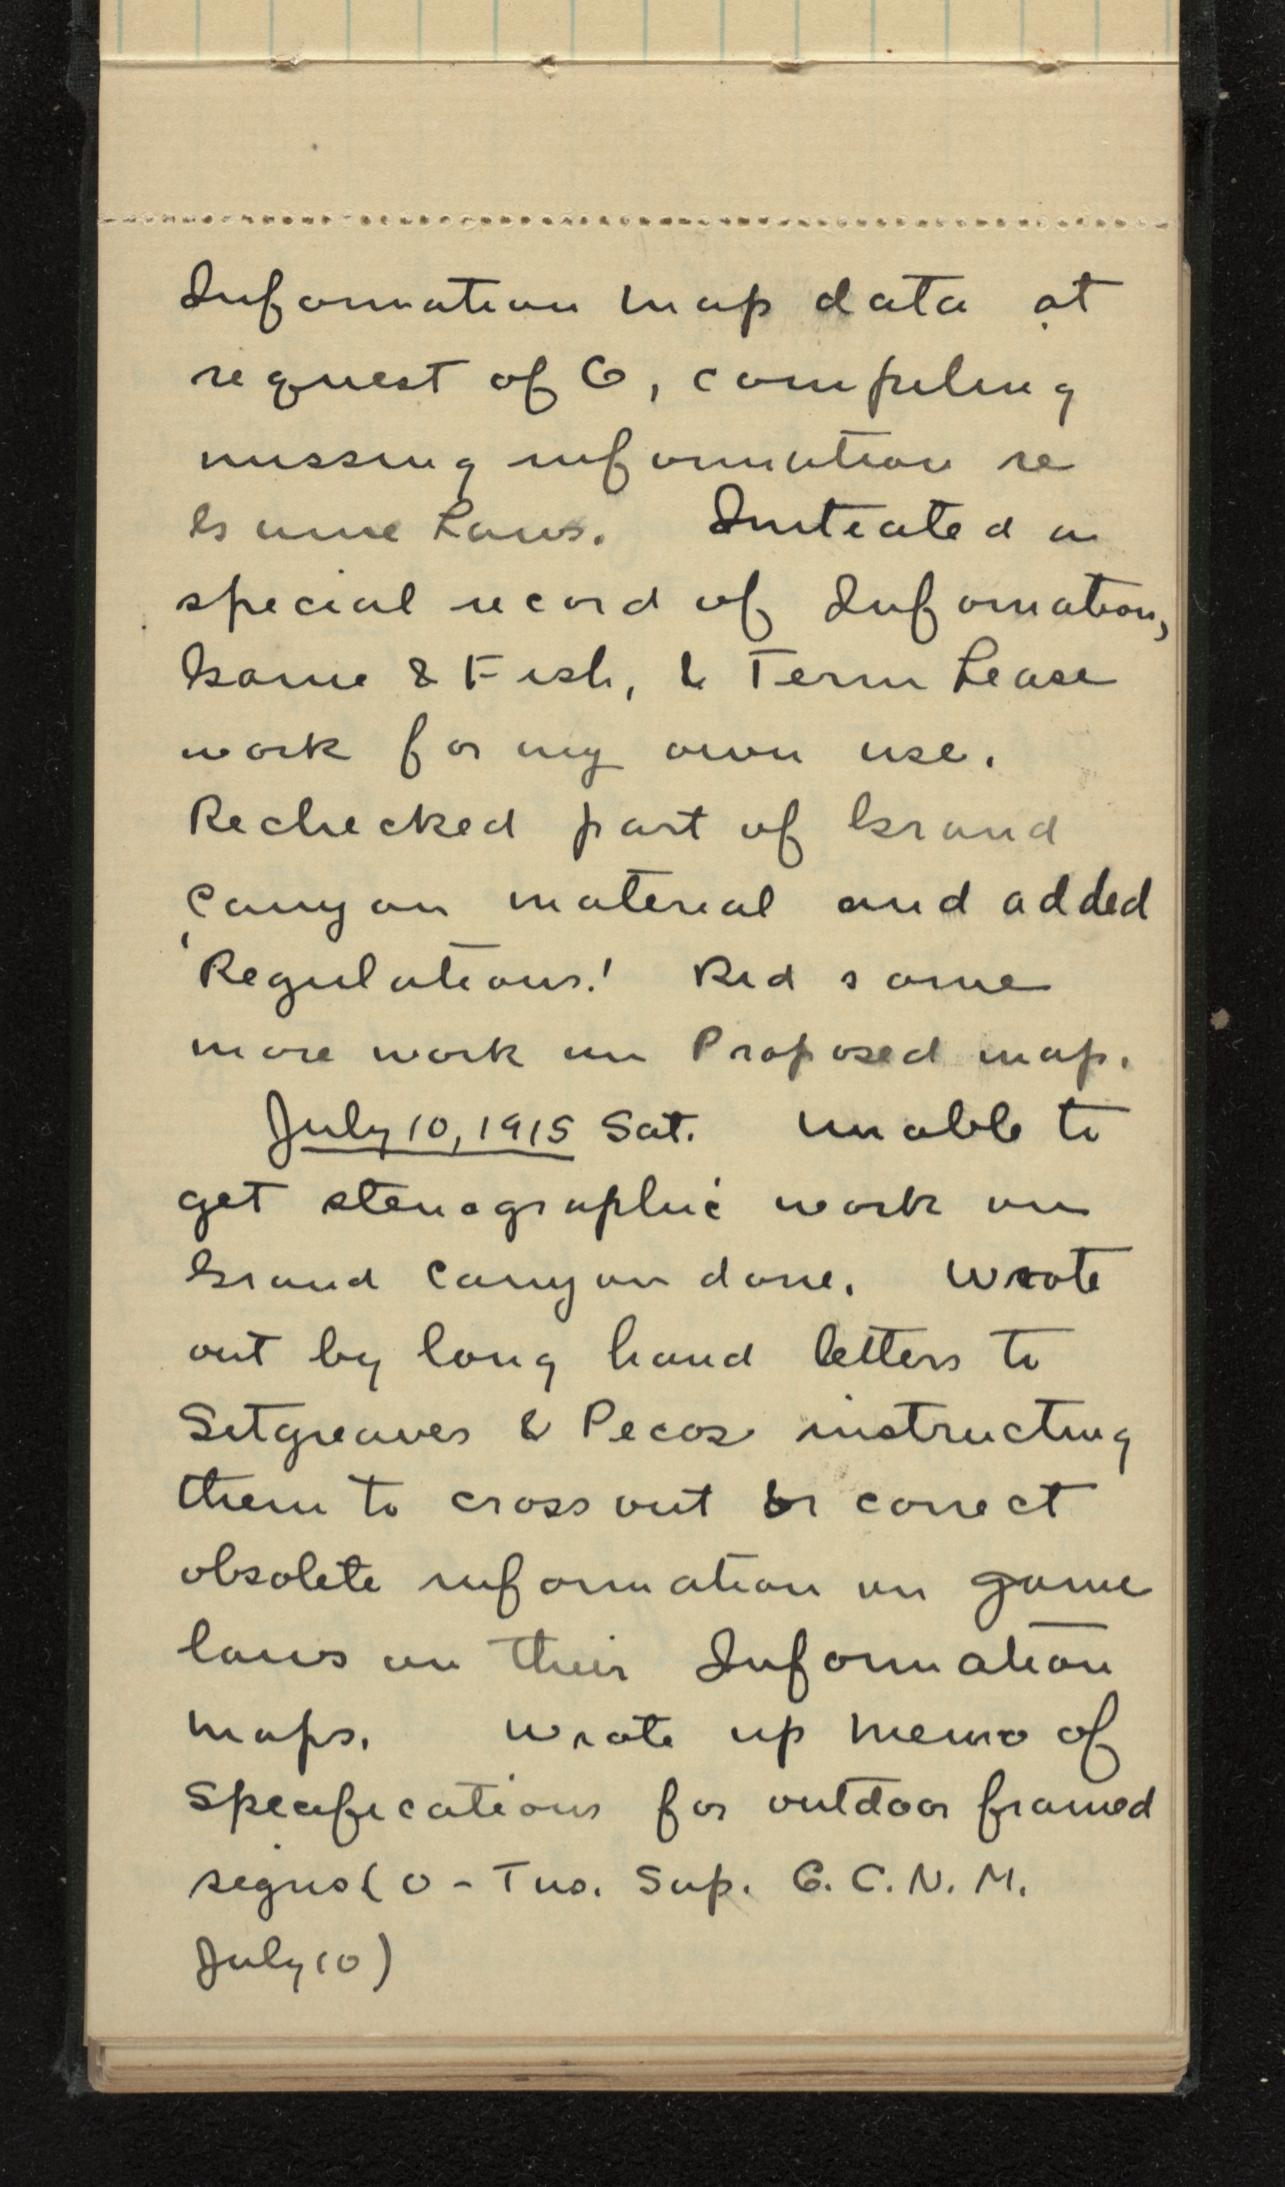 Information map data at
request of O, compiling
missing information re
Game Laws. Initiated a
special record of Information,
Game & Fish, & Term Lease
work for my own use.
Rechecked part of Grand
Canyon material and added
'Regulations.' Did some
more work on Proposed map.
July 10, 1915 Sat. Unable to
get stenographic work on
Grand Canyon done. Wrote
out by long hand letters to
Sitgreaves & Pecos instructing
them to cross out or correct
obsolete information on game
laws on their Information
maps. Wrote up memo of
specifications for outdoor framed
signs (O - Tus. Sup. G.C.N.M.
July 10)